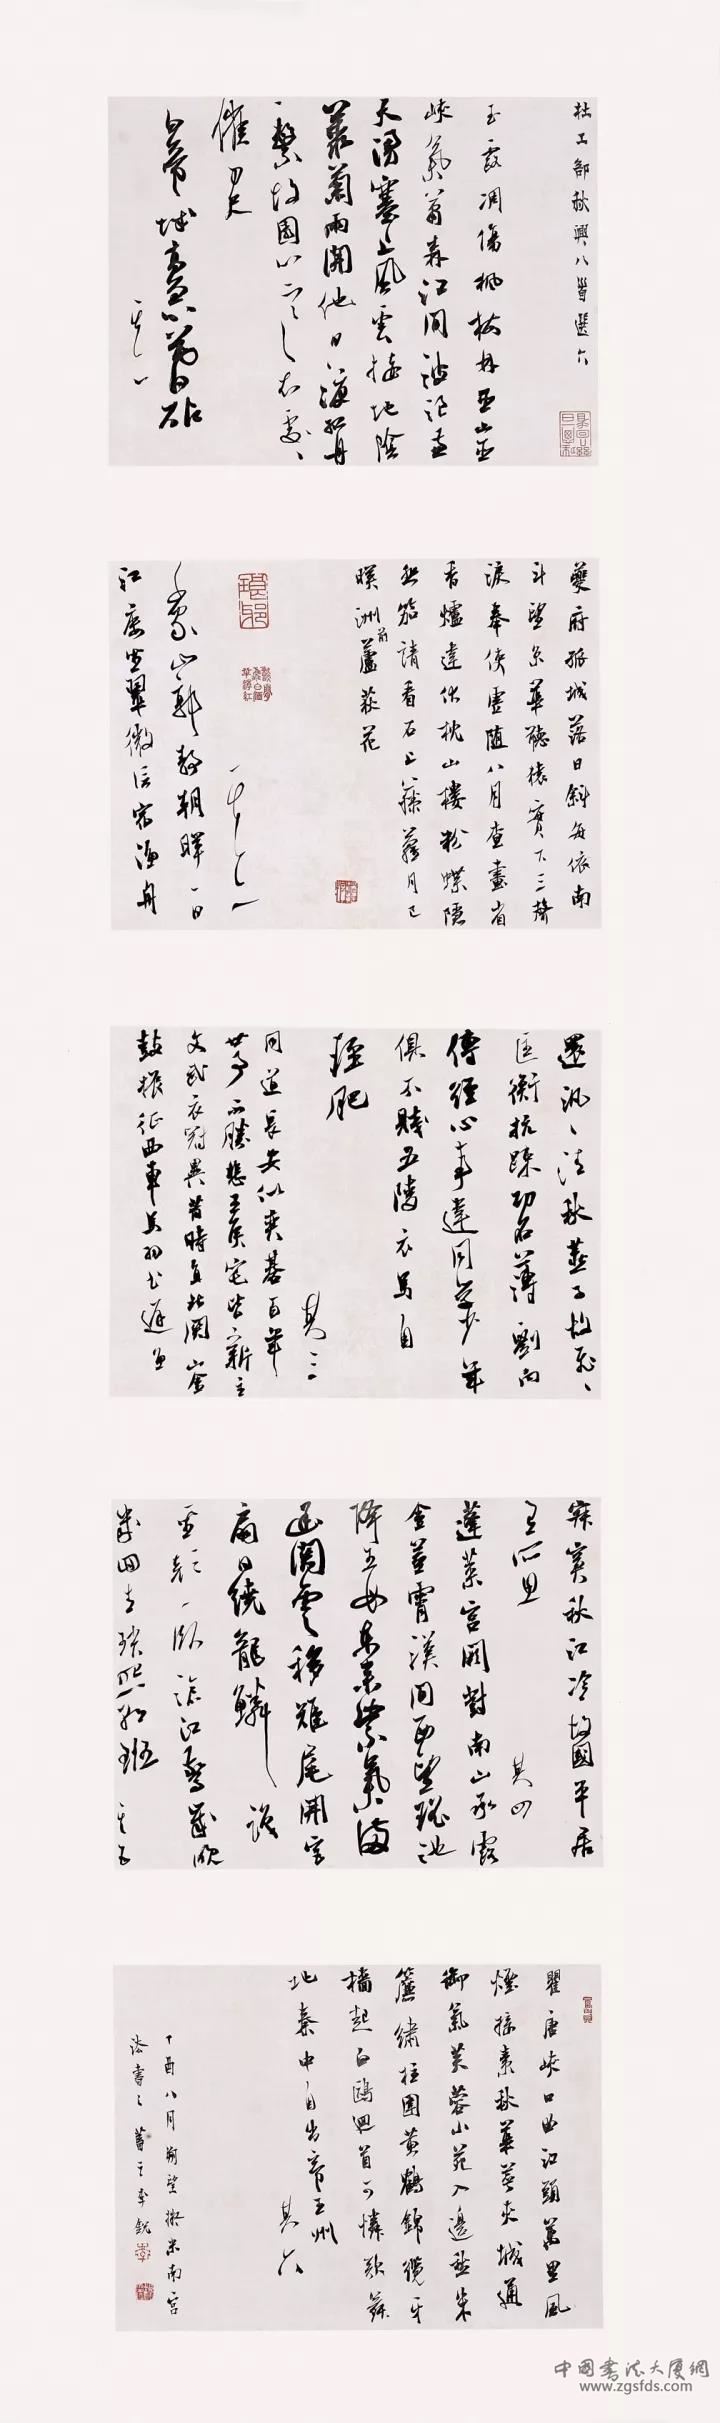 杜工部秋興八首選六
玉露凋傷楓樹林巫山巫
峽氣蕭森江間波浪兼
天湧塞上風雲接地陰
叢菊兩開他日淚孤舟
一繫故園心寒衣處、
催刀尺
白帝城高急暮砧
其一
夔府孤城落日斜每依南
斗望京華聽猿實下三聲
淚奉使虛隨八月查畫省
香爐違伏枕山樓粉蝶隱
悲笳請看石上藤蘿月已
映洲前蘆荻花
其二
千家山郭靜朝暉一日
江樓坐翠微信宿漁舟
還汎、清秋燕子故飛、
匡衡抗疏功名薄劉向
傳經心事違同學少年
俱不賤五陵衣馬自
輕肥
其三
聞道長安似奕棊百年
世事不勝悲王侯宅皆新主
文武衣冠異昔時直北關山金
鼓振征西車馬羽書遲魚
寂寞秋江冷故國平居
有所思
其四
蓬萊宮闕對南山承露
金莖霄漢間西望瑤池
降王母東來紫氣滿
函關雲移雉尾開宮
扇日繞龍鱗識
聖顏一臥滄江驚歲晚
幾回青瑣照朝班 其五
瞿唐峽口曲江頭萬里風
煙接素秋華萼夾城通
御氣芙蓉小苑入邊愁朱
簾繡柱圍黃鶴錦纜牙
檣起白鷗迴首可憐歌舞
地秦中自古帝王州
其六
丁酉八月朔望擬米南宮
法書之 李銳
中國書法大廈網
www.zgsfds.com